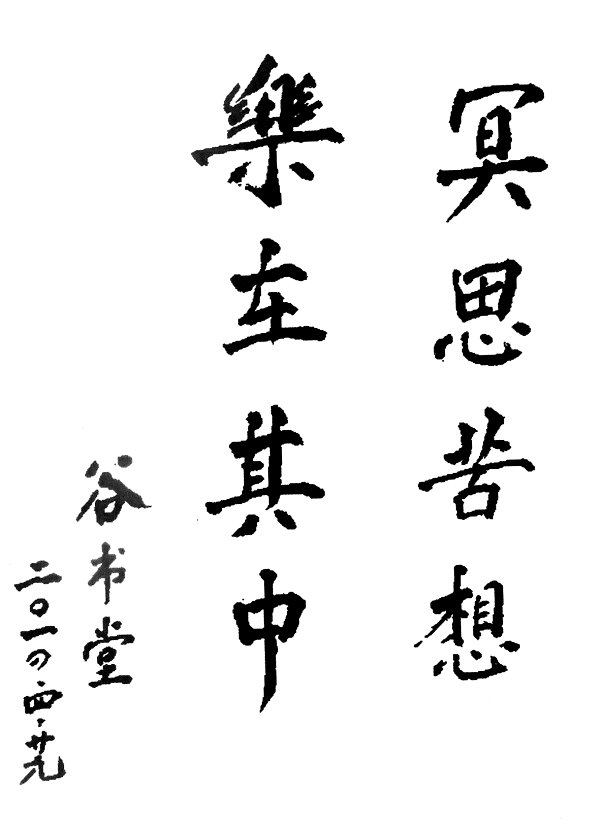 冥思苦想
樂在其中
谷书堂
二〇一〇·四·廿九